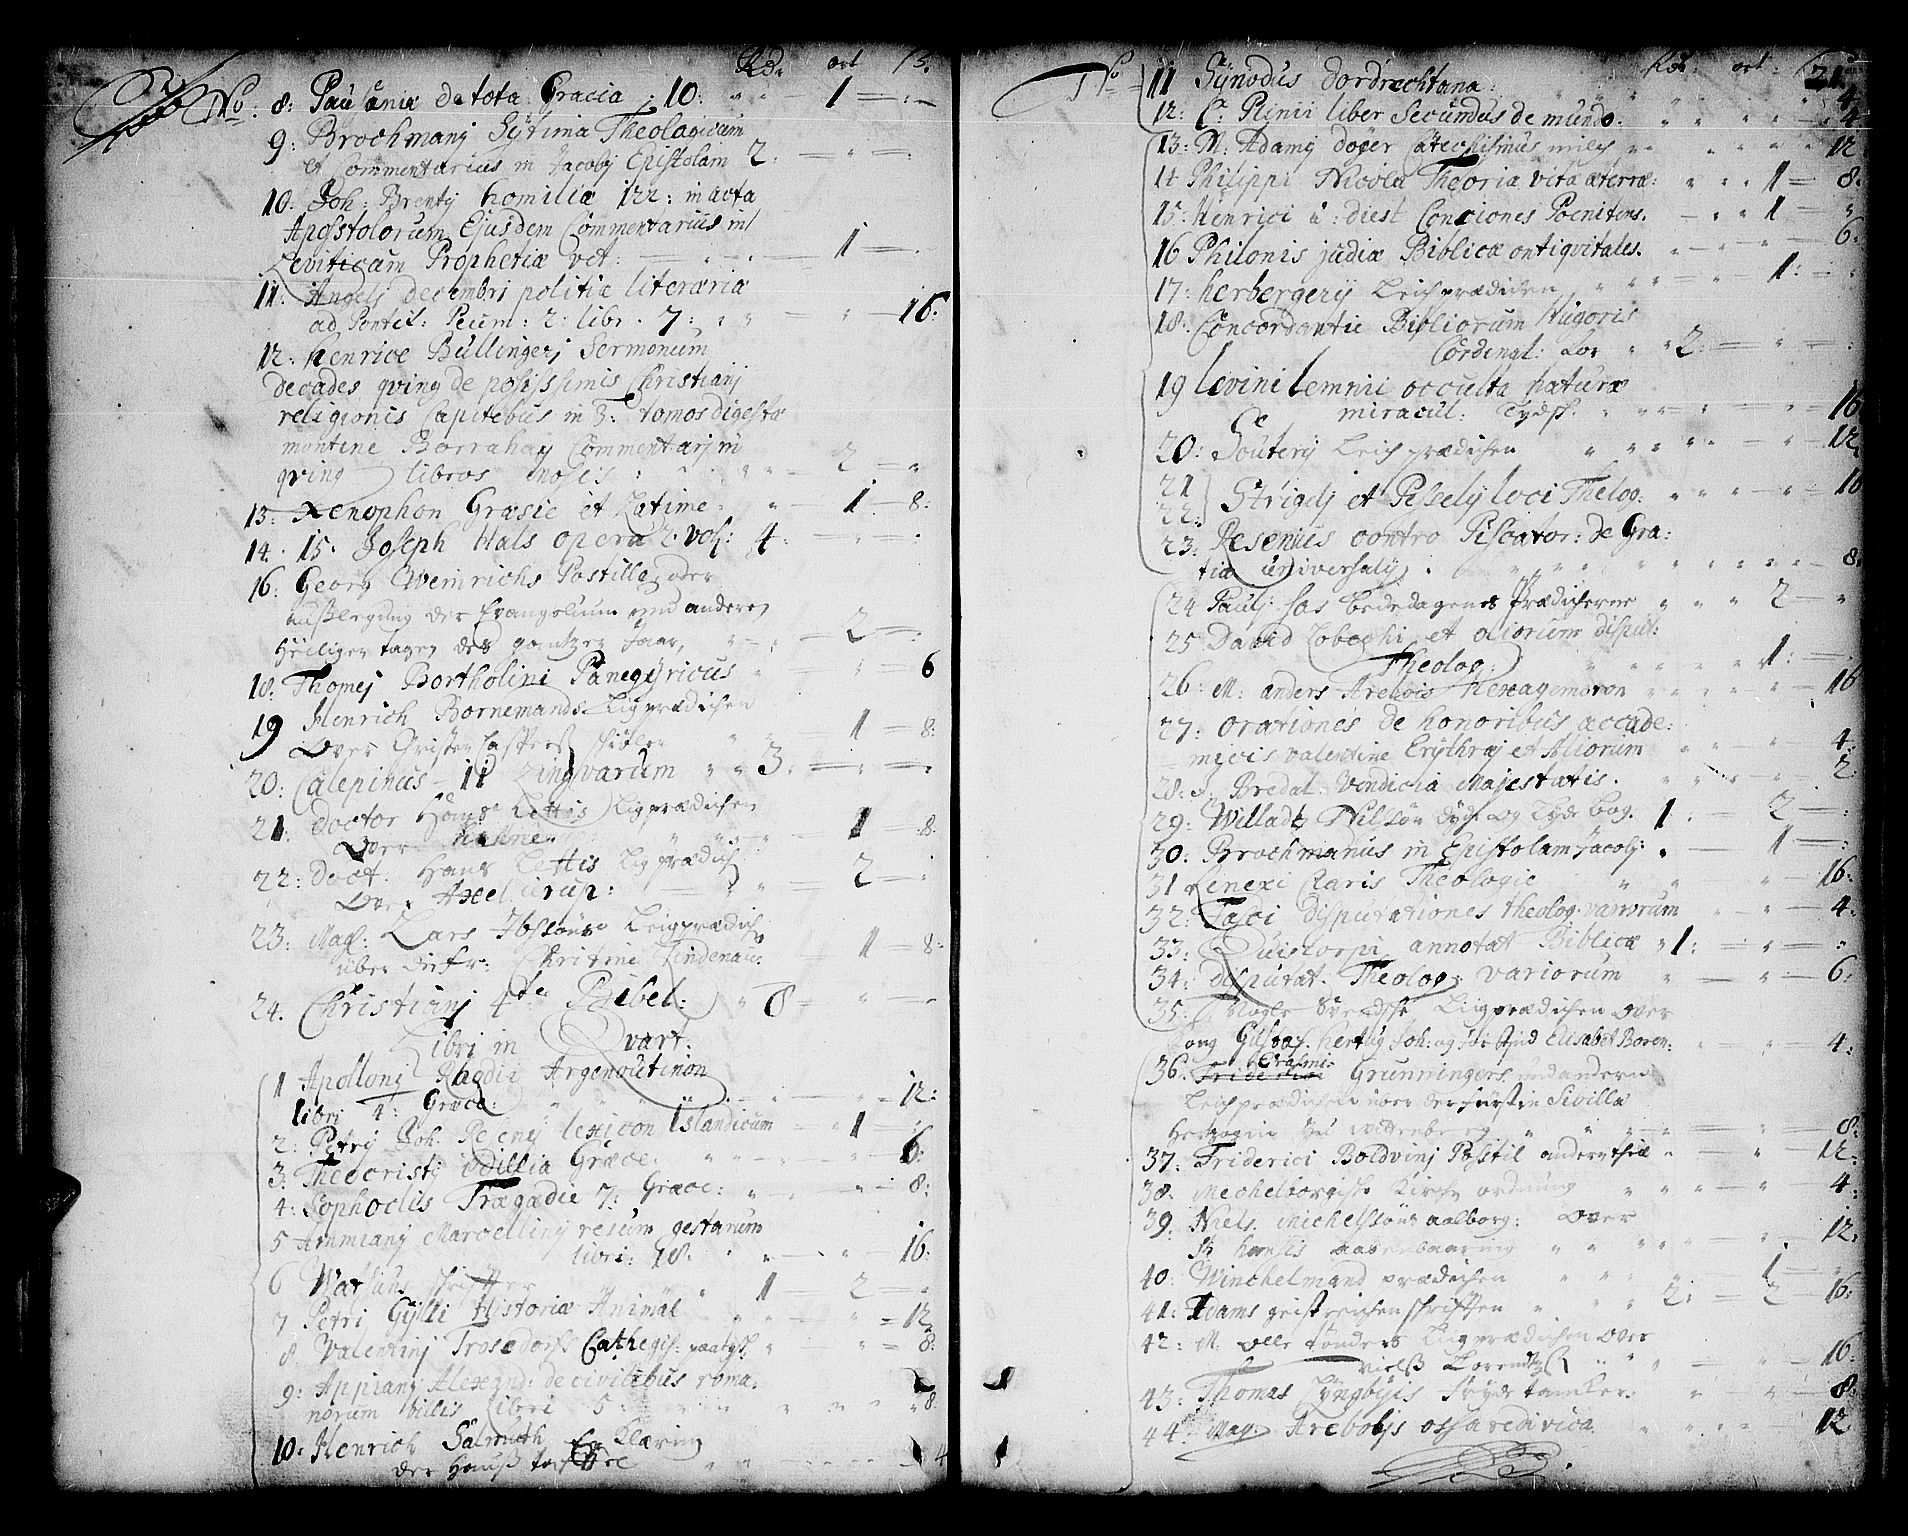 Rdr ort ß.
No. 8: Pausaniæ de tota Græcia 10: 1
9: Brochmanj Sÿtima Theologicum
et Commentarius in Jacobj Epistolam 2:
10: Joh: Brentij homiliæ 122: in acta
Apostolorum Ejusdem Commentarius in
Leviticum Prophetiæ vet: 1
11: Angelj decembri politiæ literariæ
ad Pontif: Pium: 2: libr. 7: 16:
12: Henrice Bullingerj Sermonum
decades qvinq de posissimis Christianj
religionis Capitebus in 3: tomos digestæ
montene Borrahaÿ Commentarj in
qvinq libros mosis: 2
13: Xenophon Græsie et Latine. 1. 8:
14. 15: Joseph Hals opera 2. vol: 4:
16: Georg Weinrichs Postilla, oder
außlegung der Evangelium und anderen
Heiligen tagen des gantzen Jaar, 2
18: Thomej Bortholini Panegÿricus 6
19 Henrich Bornemands Ligprædichen
Over Christen Caspersen Skiöler 1 8:
20: Calepinus 11 Lingvarum 3.
21: Doctor Hans Lettis Ligprædichen
Over 1 8:
22: Doct. Hans Lettis Ligprædich
Over Axel Urup: 2
23: Mag: Lars Ibssøns Leigprædich
über die fr: Christine Lindenau: 1 8:
24. Christianj 4ten Bibel: 8
Libri in Qvart.
1 Apollonj Rhodii Argonoutinon
libri 4: Græce: 12:
2: Petrij Joh. Resenij lexicon Islandicum 1
3: Theocristj idillia Græce. 6:
4: Sophoclis Trægædie 7: Græce: 8:
5 Ammianj Marcellinj rerum gestarum
libri: 18. 16:
6 skriffter 1 2
7 Petri Gÿlli Historiæ Animal 12
8 Valentinj Trosedorfs Cathegis: 8:
9: Appianj Alexand: de civilibus roma:
norum billis Libri 5: 8
10: Henrich Salmuth Erklæring
der Hauß taffle 4
21
No 11 Sÿnodus dordrechtana: 4
12: C: Plinii liber Secundus de mundo. 4
13: M: Adamj doger Catechismus milch 12
14 Philippi Nicolai Theoria vita æternæ: 1 8:
15: Henrici à: diest Conciones Poenitens. 1
16 Philonis judiæ Biblicæ antiqvitates. 6:
17: herbergerij Leichprædichen 1:
18: Concordantie Bibliorum Hugoris
Cardinal: 2:
19 Levini lemnii occulta naturæ
miracul: Tydsk. 16
20: Souterij Leichprædichen 12
21
22: Strigelj et Peselij loci Theolog: 16
23: Resenius contra Piscator: de Gra:
tiæ universalj. 8:
24 Paulj: bededagenes Prædicherne 2
25: David Lobechi et aliorum disput:
Theolog: 1:
26: M: anders Arebois Hexagemoron 16
27: orationes de honoribus accade:
micis valentine Erÿthraj et Aliorum 4
28: J: Bredal Vindicia Majestatis. 2:
29: Willadtz Nilsøn dyd og Lyde bog. 1. 2
30: Brochmanus in Epistolam Jacobj: 1
31 Lenexi Claris Theologie 16:
32: Fasci disputationes theolog. variorum 4.
33: Quistorpi annotat Biblica 1:
34: disputat. Theolog. variorum 6:
35: Mogle Svendske Ligprædichen over
Kong Gustaf. hertug Joh: og Elisabet 4:
36: Erasmi Grunningers und andern
Leichprædichen über der fürstin Sibilla
Hertzogin zu wittenberg 8:
37: Friderici Boldvinj Postil 12:
38. Mechelborgiske Kirche ordnung 4:
39. Niels Michelssøns aalborg: over
St. hansis aabenbaaring 12:
40: Winchelmand prædichen 1
41: Adams geistreichen schrifften 2: 2 16:
42: M. Olle Tønders Ligprædichen over
nielß Lorendtzß 16:
43: Thomas Lÿngbÿis Frÿdetancker. 8:
44: Mag: Arebojs ossa rediviva 12